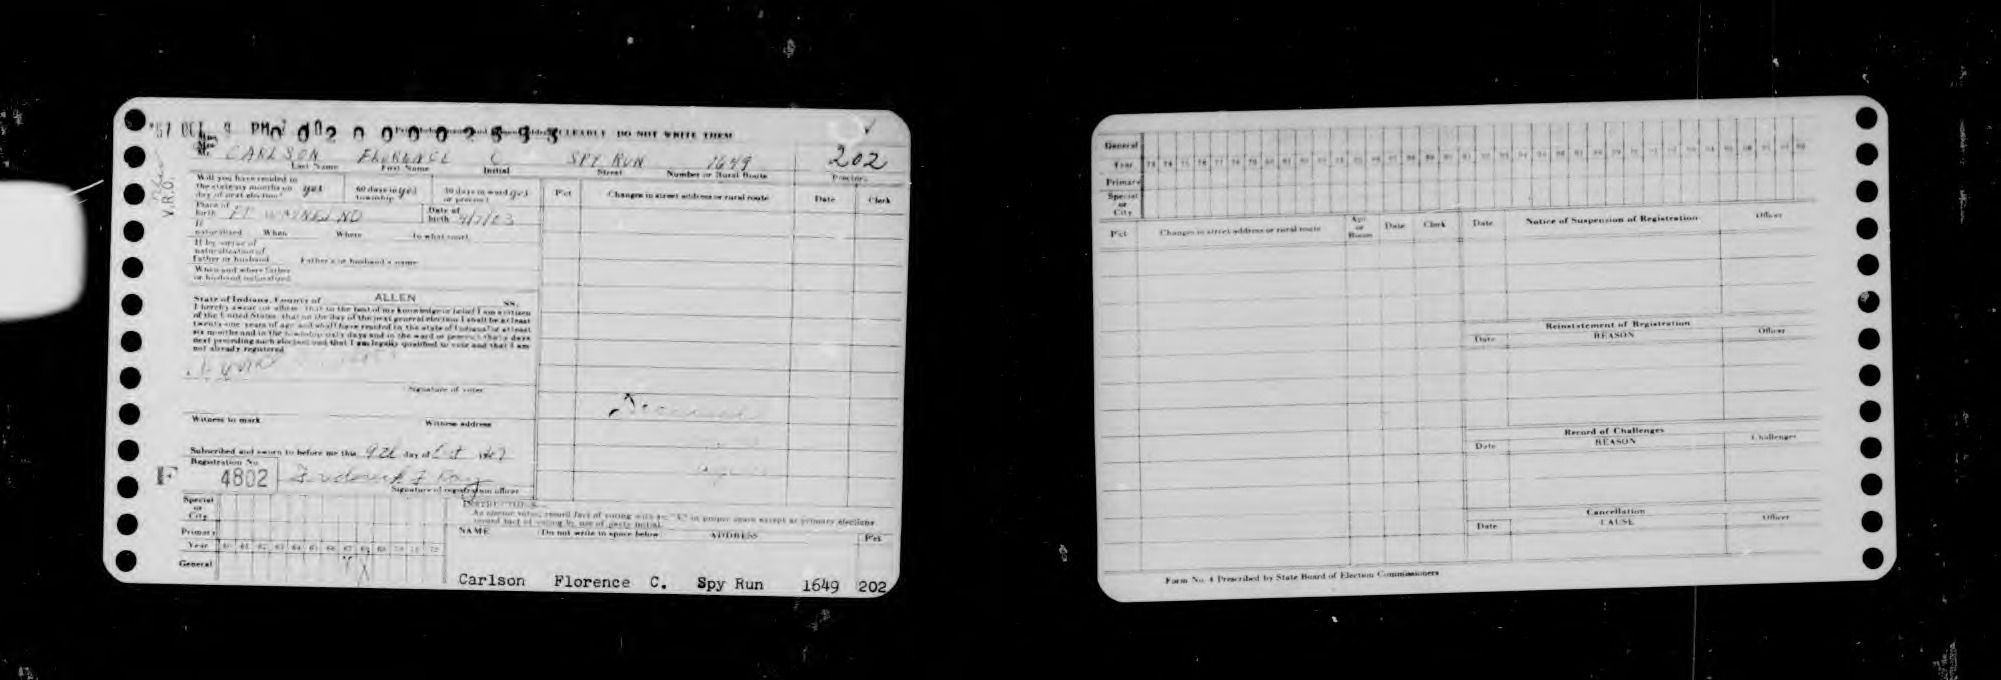 CLEARLY DO NOT WRITE THEM
CARLSON FLORENCE C SPY RUN 1649 202
Last Name First Name Initial Street Number or Rural Route Precinct
Will you have resided in
the state six months on yes 60 days in yes 30 days in ward yes
day of next election? township or precinct
Pct Changes in street address or rural route Date Clerk
Place of
birth FT WAYNE IND Date of birth 4/7/03
If
naturalized When Where In what court
If by virtue of
naturalization of
Father or husband Father's or husband's name
When and where father
or husband naturalized
State of Indiana, County of ALLEN SS.
I hereby swear (or affirm) that to the best of my knowledge or belief I am a citizen
of the United States, that on the day of the next general election I shall be at least
twenty-one years of age and shall have resided in the state of Indiana for at least
six months and in the township sixty days and in the ward or precinct thirty days
next preceding such election and that I am legally qualified to vote and that I am
not already registered
Signature of voter
Witness to mark Witness address
Subscribed and sworn to before me this 9th day of Oct 1967
Registration No.
F 4802
Signature of registration officer
V.R.O.
Special
or
City
Primary
Year 60 61 62 63 64 65 66 67 68 69 70 71 72
General
INSTRUCTIONS
As elector votes, record fact of voting with an "X" in proper space except at primary elections
record fact of voting by use of party initial.
NAME (Do not write in space below) ADDRESS Pct
Carlson Florence C. Spy Run 1649 202
General
Year 73 74 75 76 77 78 79
Primary
Special
or
City
Pct Changes in street address or rural route Apt. or Room Date Clerk
Date Notice of Suspension of Registration Officer
Reinstatement of Registration
Date REASON Officer
Record of Challenges
Date REASON Challenger
Cancellation
Date CAUSE Officer
Form No. 4 Prescribed by State Board of Election Commissioners